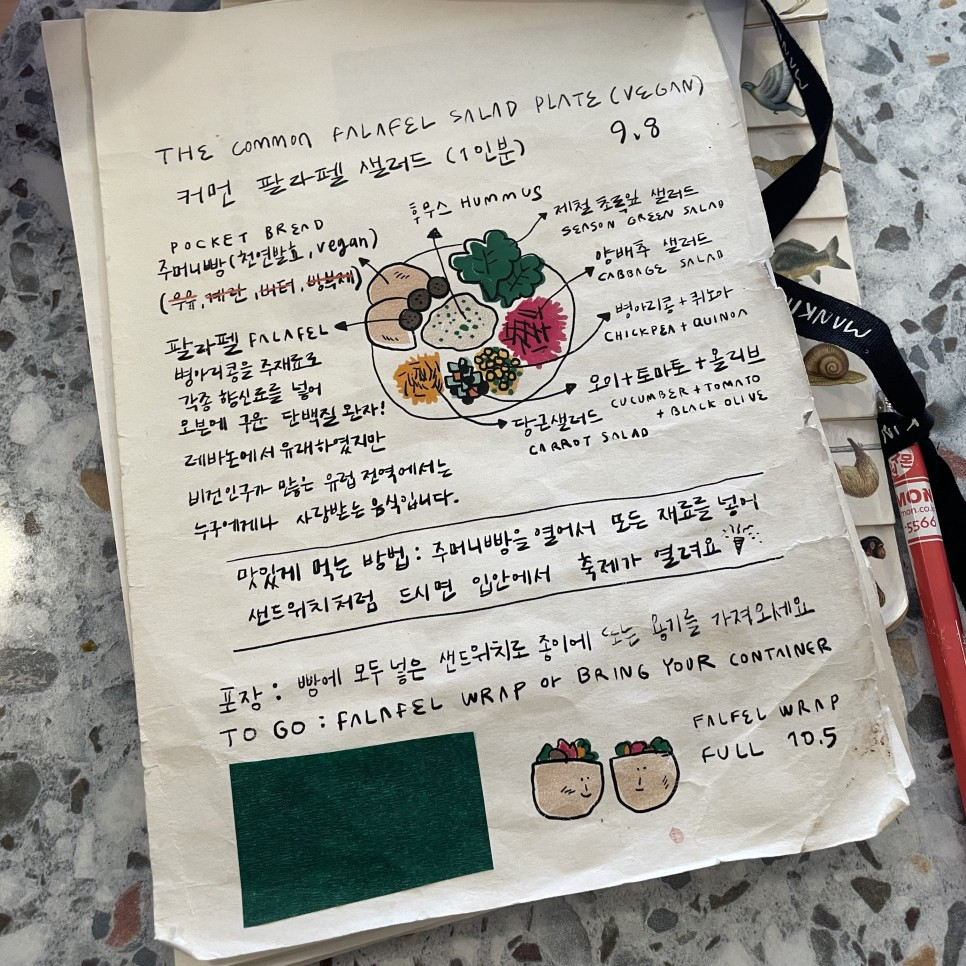 THE COMMON FALAFEL SALAD PLATE (VEGAN)
커먼 팔라펠 샐러드 (1인분)
9.8
POCKET BREAD
주머니빵 (천연발효, vegan)
(우유, 계란, 버터, 방부제)
후무스 HUMMUS
제철 초록잎 샐러드
SEASON GREEN SALAD
양배추 샐러드
CABBAGE SALAD
병아리콩 + 퀴노아
CHICKPEA + QUINOA
오이 + 토마토 + 올리브
CUCUMBER + TOMATO
+ BLACK OLIVE
당근샐러드
CARROT SALAD
팔라펠 FALAFEL
병아리콩을 주재료로
각종 향신료를 넣어
오븐에 구운 단백질 완자!
레바논에서 유래하였지만
비건인구가 많은 유럽 전역에서는
누구에게나 사랑받는 음식입니다.
맛있게 먹는 방법 : 주머니빵을 열어서 모든 재료를 넣어
샌드위치처럼 드시면 입안에서 축제가 열려요
포장 : 빵에 모두 넣은 샌드위치로 종이에 또는 용기를 가져오세요
TO GO : FALAFEL WRAP or BRING YOUR CONTAINER
FALFEL WRAP
FULL 10.5
MANKI
MON
mon.co.k
-5566